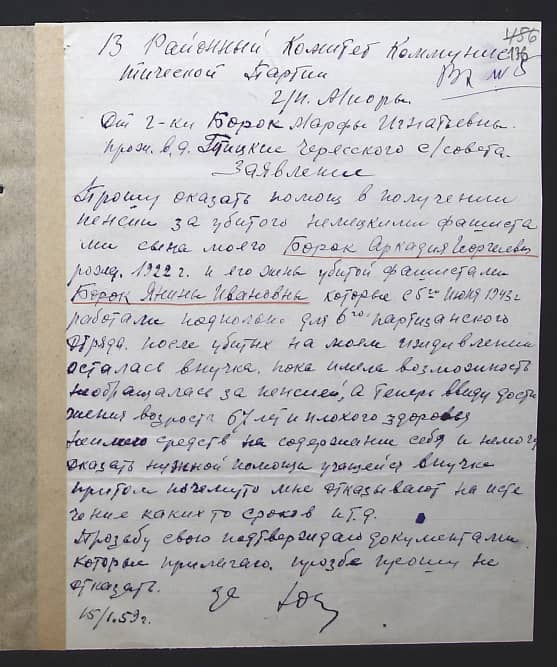 486
176
В Районный Комитет Коммунис
тической Партии
г/п. Миоры.
Вх №5
От г-ки Борок Марфы Игнатьевны.
прож. в д. Птицкие Чересского с/совета.
Заявление
Прошу оказать помощ в получении
пенсии за убитого немецкими фашиста
ми сына моего Борок Аркадия Георгиевич
рожд. 1922 г. и его жены убитой фашистами
Борок Янины Ивановны которые с 5го Июня 1943г
работали подпольно для 6го партизанского
отряда. после убитых на моем иждивении
осталась внучка. пока имела возможность
необращалась за пенсией, а теперь ввиду дости
жения возрости 67 лет и плохого здоровья
неимею средств на содержание себя и немогу
оказать нужной помощи учащейся внучке
притом почемуто мне отказывают на исте
чение каких то сроков и т.д.
Прозьбу свою подтверждаю документами
которые прилагаю. прозбе прошу не
отказать.
за
15/I.59г.